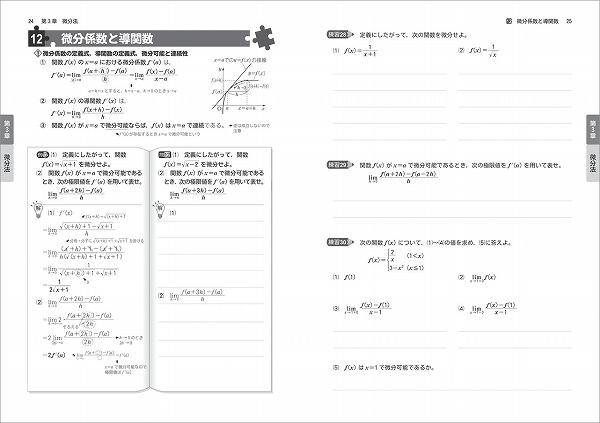 24 第3章 微分法
12 微分係数と導関数
① 微分係数の定義式，導関数の定義式，微分可能と連続性
① 関数 f(x) の x=a における微分係数 f'(a) は，
f'(a)=lim_{h→0} f(a+h)-f(a)/h=lim_{x→a} f(x)-f(a)/x-a
a+h=x とすると，h=x-a，h→0のときx→a
x=aでのy=f(x)の接線
y=f(x)
f(a+h)
f(a)
O
a
a+h
② 関数 f(x) の導関数 f'(x) は，
f'(x)=lim_{h→0} f(x+h)-f(x)/h
③ 関数 f(x) が x=a で微分可能ならば，f(x) は x=a で連続である。
逆は成立しないので注意
f'(a)が存在するとき x=a で微分可能という
(1) 定義にしたがって，関数
f(x)=√x+1 を微分せよ。
(2) 関数 f(x) が x=a で微分可能である
とき，次の極限値を f'(a) を用いて表せ。
lim_{h→0} f(a+2h)-f(a)/h
解
(1) f'(x)
f(x+h)=√(x+h)+1
=lim_{h→0} √(x+h)+1-√x+1/h
分母・分子に√(x+h)+1+√x+1 を掛ける
=lim_{h→0} (x+h)+1-(x+1)/h(√(x+h)+1+√x+1)
=lim_{h→0} 1/√(x+h)+1+√x+1
=1/2√x+1
(2) lim_{h→0} f(a+2h)-f(a)/h
=lim_{h→0} 2・f(a+2h)-f(a)/2h
そろえる
=2 lim_{2h→0} f(a+2h)-f(a)/2h
h→0のとき
2h→0
=2f'(a)
x=a で微分可能なので
極限値は f'(a)
(1) 定義にしたがって，関数
f(x)=√x-2 を微分せよ。
(2) 関数 f(x) が x=a で微分可能である
とき，次の極限値を f'(a) を用いて表せ。
lim_{h→0} f(a+3h)-f(a)/h
解
(1)
(2) lim_{h→0} f(a+3h)-f(a)/h
第3章
微分法
12 微分係数と導関数 25
練習28 定義にしたがって，次の関数を微分せよ。
(1) f(x)=1/x+1
(2) f(x)=1/√x
練習29 関数 f(x) が x=a で微分可能であるとき，次の極限値を f'(a) を用いて表せ。
lim_{h→0} f(a+2h)-f(a-2h)/h
練習30 次の関数 f(x) について，(1)〜(4)の値を求め，(5)に答えよ。
f(x)={2/x (1<x)
3-x² (x≦1)
(1) f(1)
(2) lim_{x→1-0} f(x)
(3) lim_{x→1+0} f(x)-f(1)/x-1
(4) lim_{x→1-0} f(x)-f(1)/x-1
(5) f(x) は x=1 で微分可能であるか。
第3章
微分法